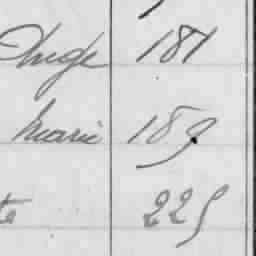 Ange 181
Marie 189
te 225